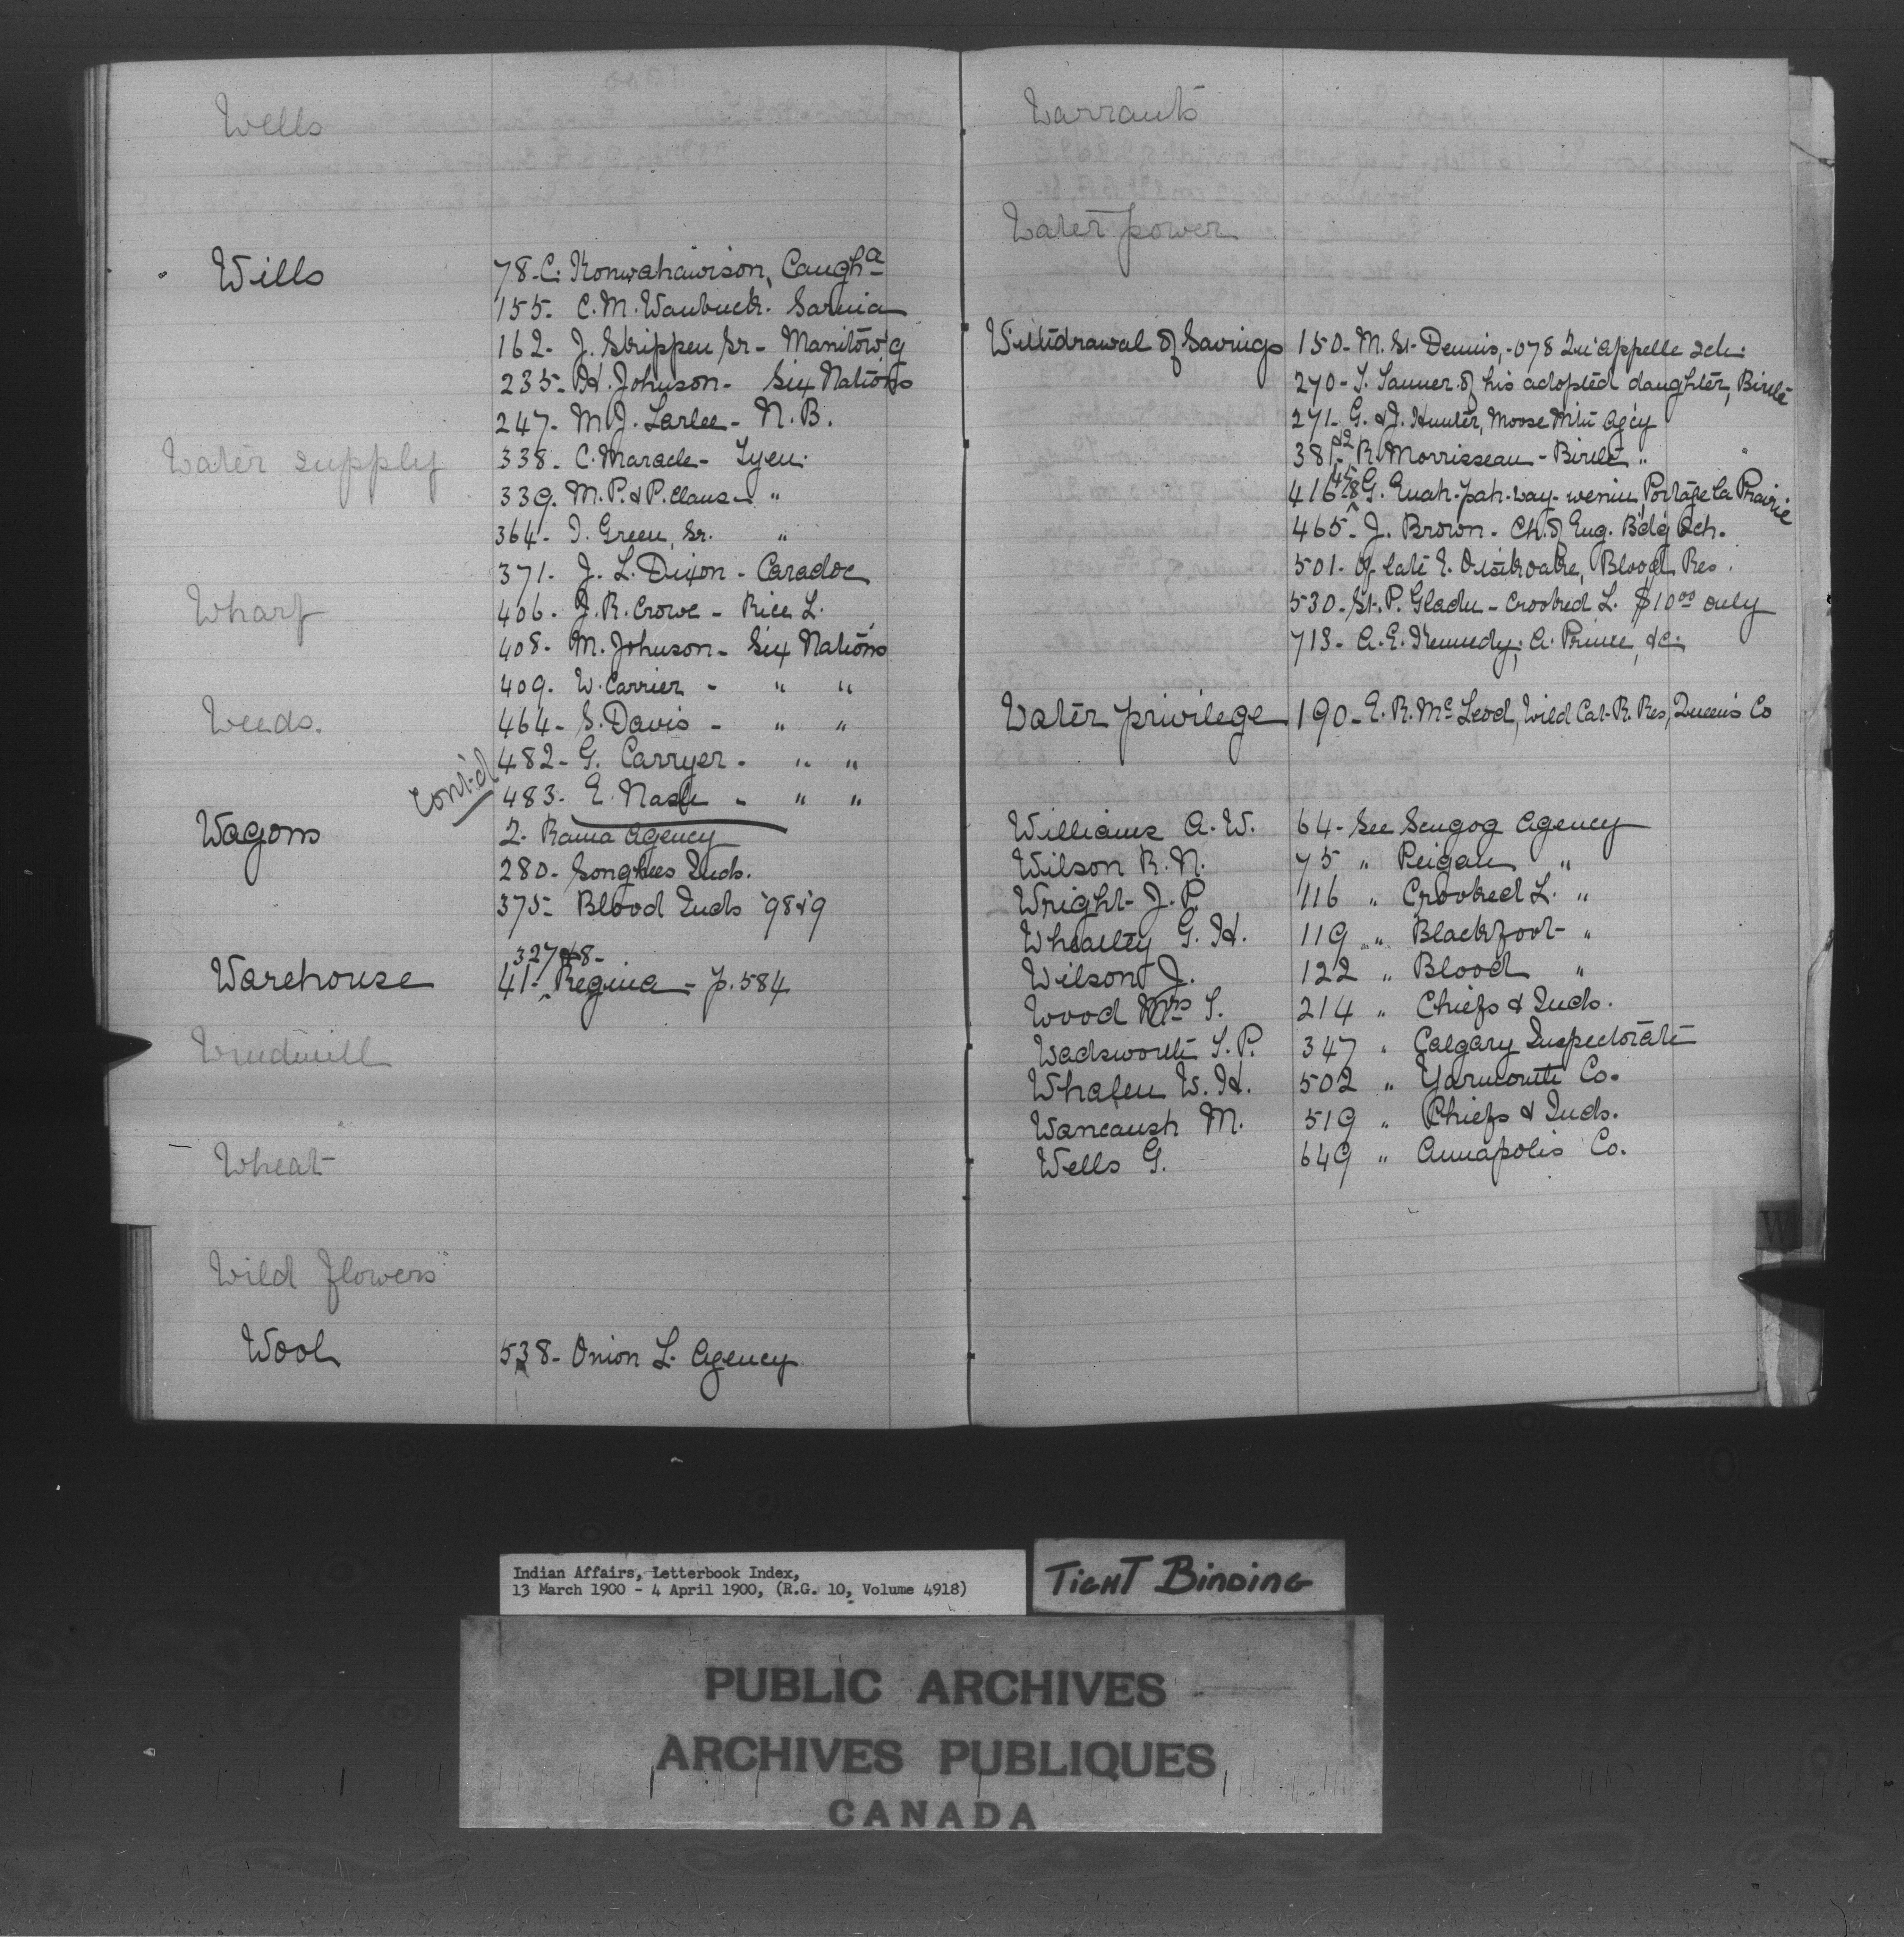 Wells
Wills
78- C. Konwahawison, Caugh^a
155- C. M. Waubuck. Sarnia
162- J. Skippen Sr- Manitow'g
235- H. Johnson- Six Nations
247- M. J. Larlee- N. B.
Water supply
338- C. Maracle- Tyen.
339. M. P. & P. Claus- "
364- I. Green, Sr. "
371- J. L. Dixon- Caradoc
Wharf
406- J. R. Crowe- Rice L.
408- M. Johnson- Six Nations
409. W. Carrier - " "
Weeds.
464- S. Davis - " "
482- G. Carryer - " "
cont'd
483- E. Nash - " "
Wagons
2- Rama Agency
280- Songhees Inds.
375- Blood Inds '98&'9
327 & 8-
Warehouse
41- Regina - p. 584
Windmill
Wheat
Wild flowers
Wool
538- Onion L. Agency
Warrants
Water power
Withdrawal of Savings
150- M. St. Dennis, -078 Qu'Appelle Sch.
270- T. Tanner of his adopted daughter, Birtle
271- G. & J. Hunter, Moose Mtn Ag'cy
381-&2 R. Morrisseau - Birtle "
416- G. Portage la Prairie
465- J. Brown - Ch. of Eng. B'd'g Sch.
501- of late Blood Res.
530- St. P. Gladu- Crooked L. $10.00 only
713- A. E. Kennedy; A. Prince, &c.
Water privilege
190- E. R. McLeod, Wild Cat R. Res, Queens Co
Williams A. W. 64- See Scugog Agency
Wilson R. N. 75 " Peigan "
Wright J. P. 116 " Crooked L. "
Wheatley G. H. 119 " Blackfoot "
Wilson J. 122 " Blood "
Wood Mrs T. 214 " Chiefs & Inds.
Wadsworth T. P. 347 " Calgary Inspectorate
Whalen W. H. 502 " Yarmouth Co.
Wancaush M. 519 " Chiefs & Inds.
Wells G. 649 " Annapolis Co.
W
Indian Affairs, Letterbook Index,
13 March 1900 - 4 April 1900, (R.G. 10, Volume 4918)
TIGHT BINDING
PUBLIC ARCHIVES
ARCHIVES PUBLIQUES
CANADA